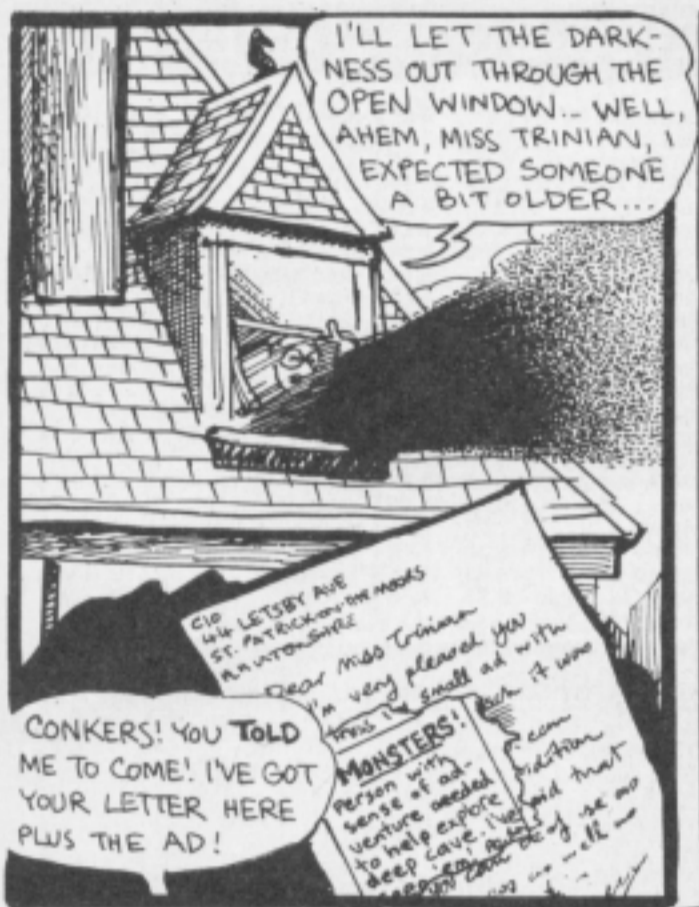 I'LL LET THE DARK-
NESS OUT THROUGH THE
OPEN WINDOW... WELL,
AHEM, MISS TRINIAN, I
EXPECTED SOMEONE
A BIT OLDER...
C/O
44 LETSBY AVE
ST. PATRICK-ON-THE-MOORS
Dear Miss Trinian
I'm very pleased you
small ad with
it was
MONSTERS!
Person with
sense of ad-
venture needed
to help explore
deep cave. I've
that
CONKERS! YOU TOLD
ME TO COME! I'VE GOT
YOUR LETTER HERE
PLUS THE AD!